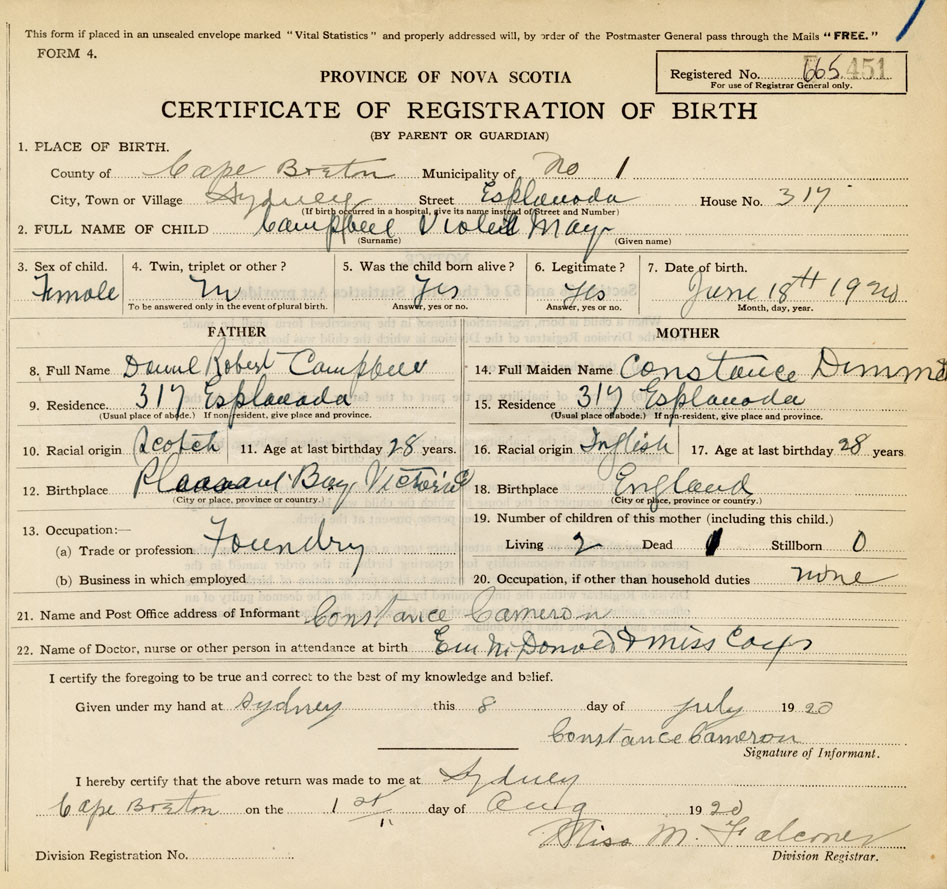 This form if placed in an unsealed envelope marked "Vital Statistics" and properly addressed will, by order of the Postmaster General pass through the Mails "FREE."
FORM 4.
PROVINCE OF NOVA SCOTIA
Registered No. 665 451
For use of Registrar General only.
CERTIFICATE OF REGISTRATION OF BIRTH
(BY PARENT OR GUARDIAN)
1. PLACE OF BIRTH.
County of Cape Breton Municipality of No 1
City, Town or Village Sydney Street Esplanada House No. 317
(If birth occurred in a hospital, give its name instead of Street and Number)
2. FULL NAME OF CHILD Campbell Violet May
(Surname) (Given name)
3. Sex of child. 4. Twin, triplet or other? 5. Was the child born alive? 6. Legitimate? 7. Date of birth.
Female Yes Yes June 18th 1920
To be answered only in the event of plural birth. Answer, yes or no. Answer, yes or no. Month, day, year.
FATHER MOTHER
8. Full Name Robert Campbell 14. Full Maiden Name Constance
9. Residence 317 Esplanada 15. Residence 317 Esplanada
(Usual place of abode.) If non-resident, give place and province. (Usual place of abode.) If non-resident, give place and province.
10. Racial origin Scotch 11. Age at last birthday 28 years. 16. Racial origin Inglish 17. Age at last birthday 28 years
12. Birthplace Pleasant Bay Victoria 18. Birthplace England
(City or place, province or country.) (City or place, province or country.)
13. Occupation:— 19. Number of children of this mother (including this child.)
(a) Trade or profession Foundry Living 2 Dead 1 Stillborn 0
(b) Business in which employed 20. Occupation, if other than household duties none
21. Name and Post Office address of Informant Constance Cameron
22. Name of Doctor, nurse or other person in attendance at birth & Miss
I certify the foregoing to be true and correct to the best of my knowledge and belief.
Given under my hand at Sydney this 8 day of July 1920
Constance Cameron
Signature of Informant.
I hereby certify that the above return was made to me at Sydney
Cape Breton on the 1st day of Aug 1920
Miss M. Falconer
Division Registration No. Division Registrar.